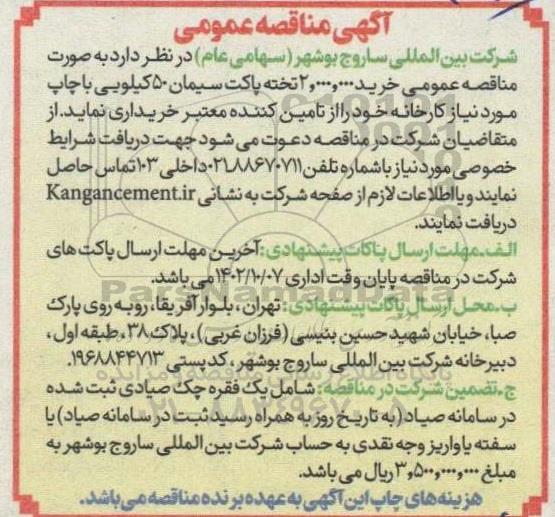 آگهی مناقصه عمومی
شرکت بین المللی ساروج بوشهر (سهامی عام) در نظر دارد به صورت
مناقصه عمومی خرید ۲,۰۰۰,۰۰۰ تخته پاکت سیمان ۵۰ کیلویی با چاپ
مورد نیاز کارخانه خود را از تامین کننده معتبر خریداری نماید. از
متقاضیان شرکت در مناقصه دعوت می شود جهت دریافت شرایط
خصوصی مورد نیاز با شماره تلفن ۰۲۱-۸۸۶۷۰۷۱۱ داخلی ۱۰۳ تماس حاصل
نمایند و یا اطلاعات لازم از صفحه شرکت به نشانی Kangancement.ir
دریافت نمایند.
الف-مهلت ارسال پاکات پیشنهادی: آخرین مهلت ارسال پاکت های
شرکت در مناقصه پایان وقت اداری ۱۴۰۲/۱۰/۰۷ می باشد.
ب-محل ارسال پاکات پیشنهادی: تهران، بلوار آفریقا، روبه روی پارک
صبا، خیابان شهید حسین بنیسی (فرزان غربی)، پلاک ۳۸، طبقه اول،
دبیرخانه شرکت بین المللی ساروج بوشهر، کدپستی ۱۹۶۸۸۴۴۷۱۳.
ج-تضمین شرکت در مناقصه: شامل یک فقره چک صیادی ثبت شده
در سامانه صیاد (به تاریخ روز به همراه رسید ثبت در سامانه صیاد) یا
سفته یا واریز وجه نقدی به حساب شرکت بین المللی ساروج بوشهر به
مبلغ ۳,۵۰۰,۰۰۰,۰۰۰ ریال می باشد.
هزینه های چاپ این آگهی به عهده برنده مناقصه می باشد.